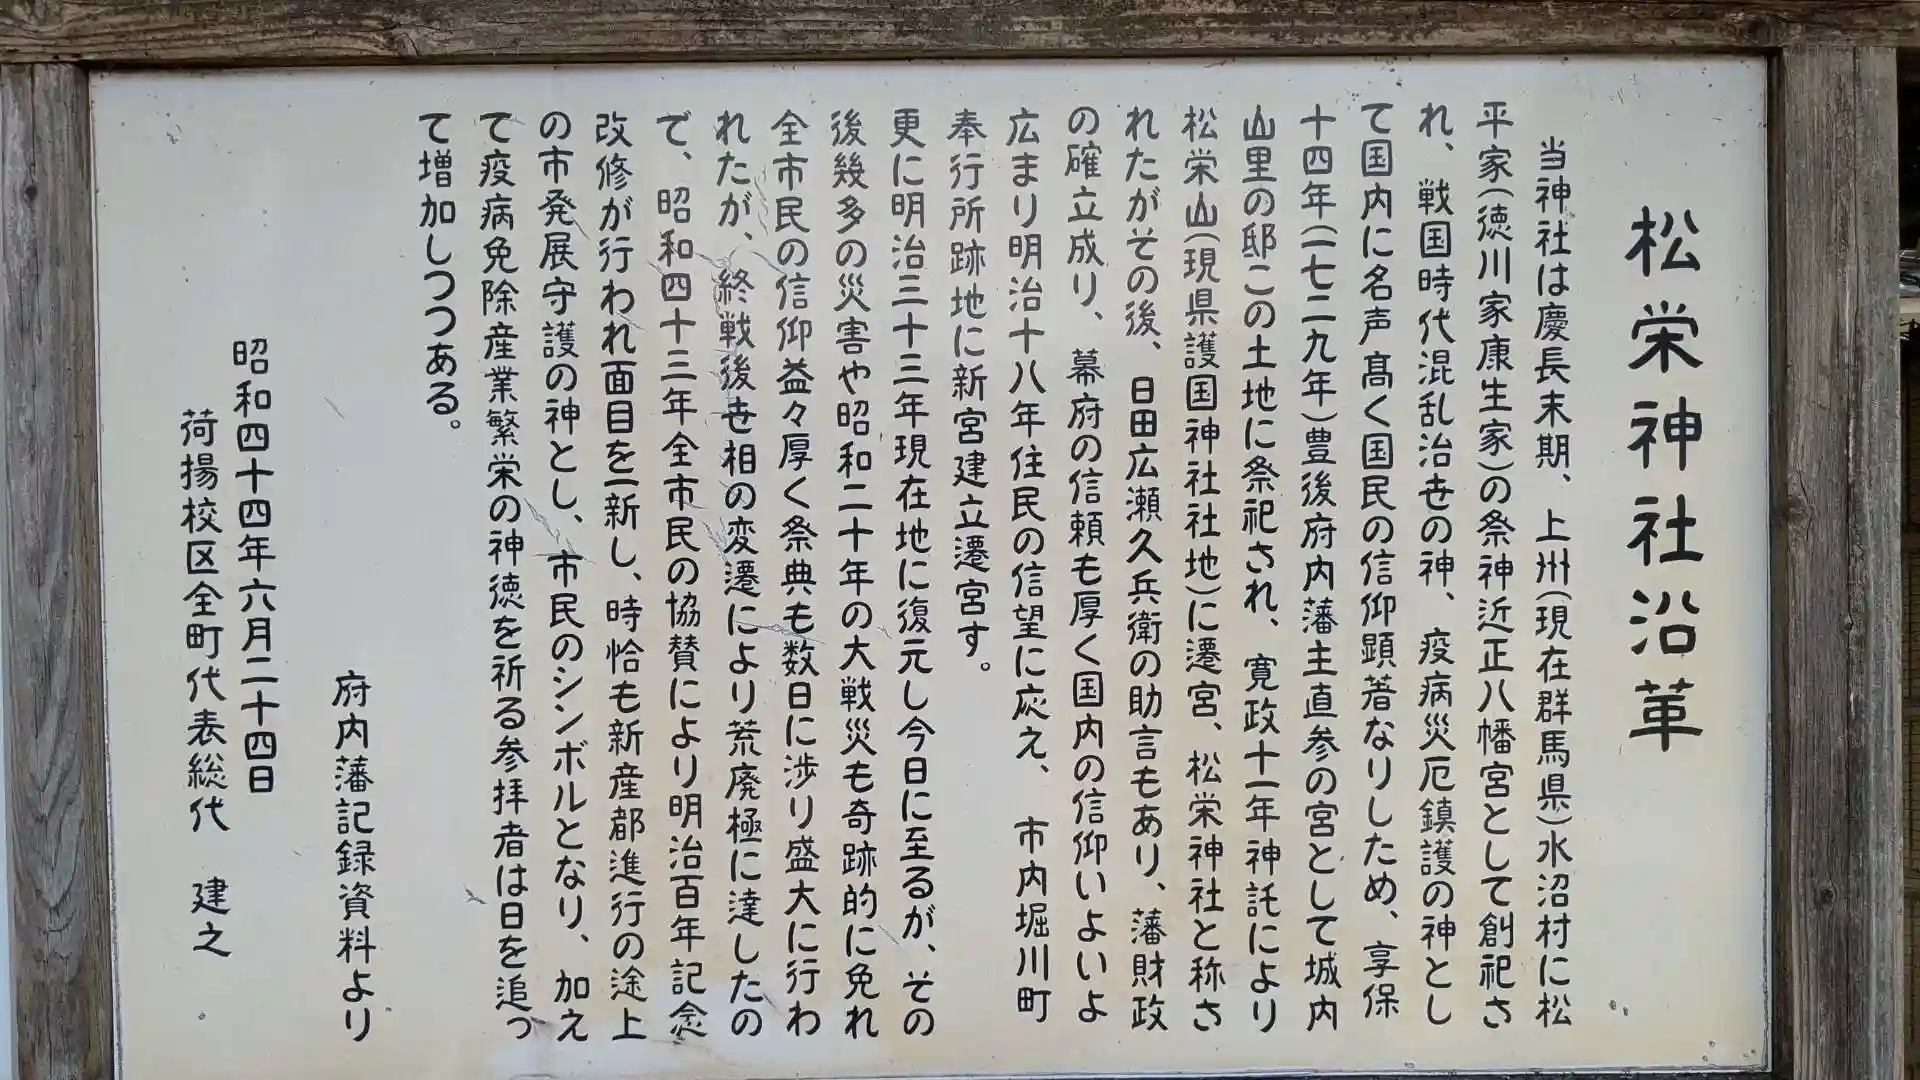 松栄神社沿革
当神社は慶長末期、上州(現在群馬県)水沼村に松
平家(徳川家康生家)の祭神近正八幡宮として創祀さ
れ、戦国時代混乱治世の神、疫病災厄鎮護の神とし
て国内に名声髙く国民の信仰顕著なりしため、享保
十四年(一七二九年)豊後府内藩主直参の宮として城内
山里の邸この土地に祭祀され、寛政十一年神託により
松栄山(現県護国神社社地)に遷宮、松栄神社と称さ
れたがその後、日田広瀬久兵衛の助言もあり、藩財政
の確立成り、幕府の信頼も厚く国内の信仰いよいよ
広まり明治十八年住民の信望に応え、市内堀川町
奉行所跡地に新宮建立遷宮す。
更に明治三十三年現在地に復元し今日に至るが、その
後幾多の災害や昭和二十年の大戦災も奇跡的に免れ
全市民の信仰益々厚く祭典も数日に渉り盛大に行わ
れたが、終戦後世相の変遷により荒廃極に達したの
で、昭和四十三年全市民の協賛により明治百年記念
改修が行われ面目を一新し、時恰も新産都進行の途上
の市発展守護の神とし、市民のシンボルとなり、加え
て疫病免除産業繁栄の神徳を祈る参拝者は日を追っ
て増加しつつある。
府内藩記録資料より
昭和四十四年六月二十四日
荷揚校区全町代表総代 建之